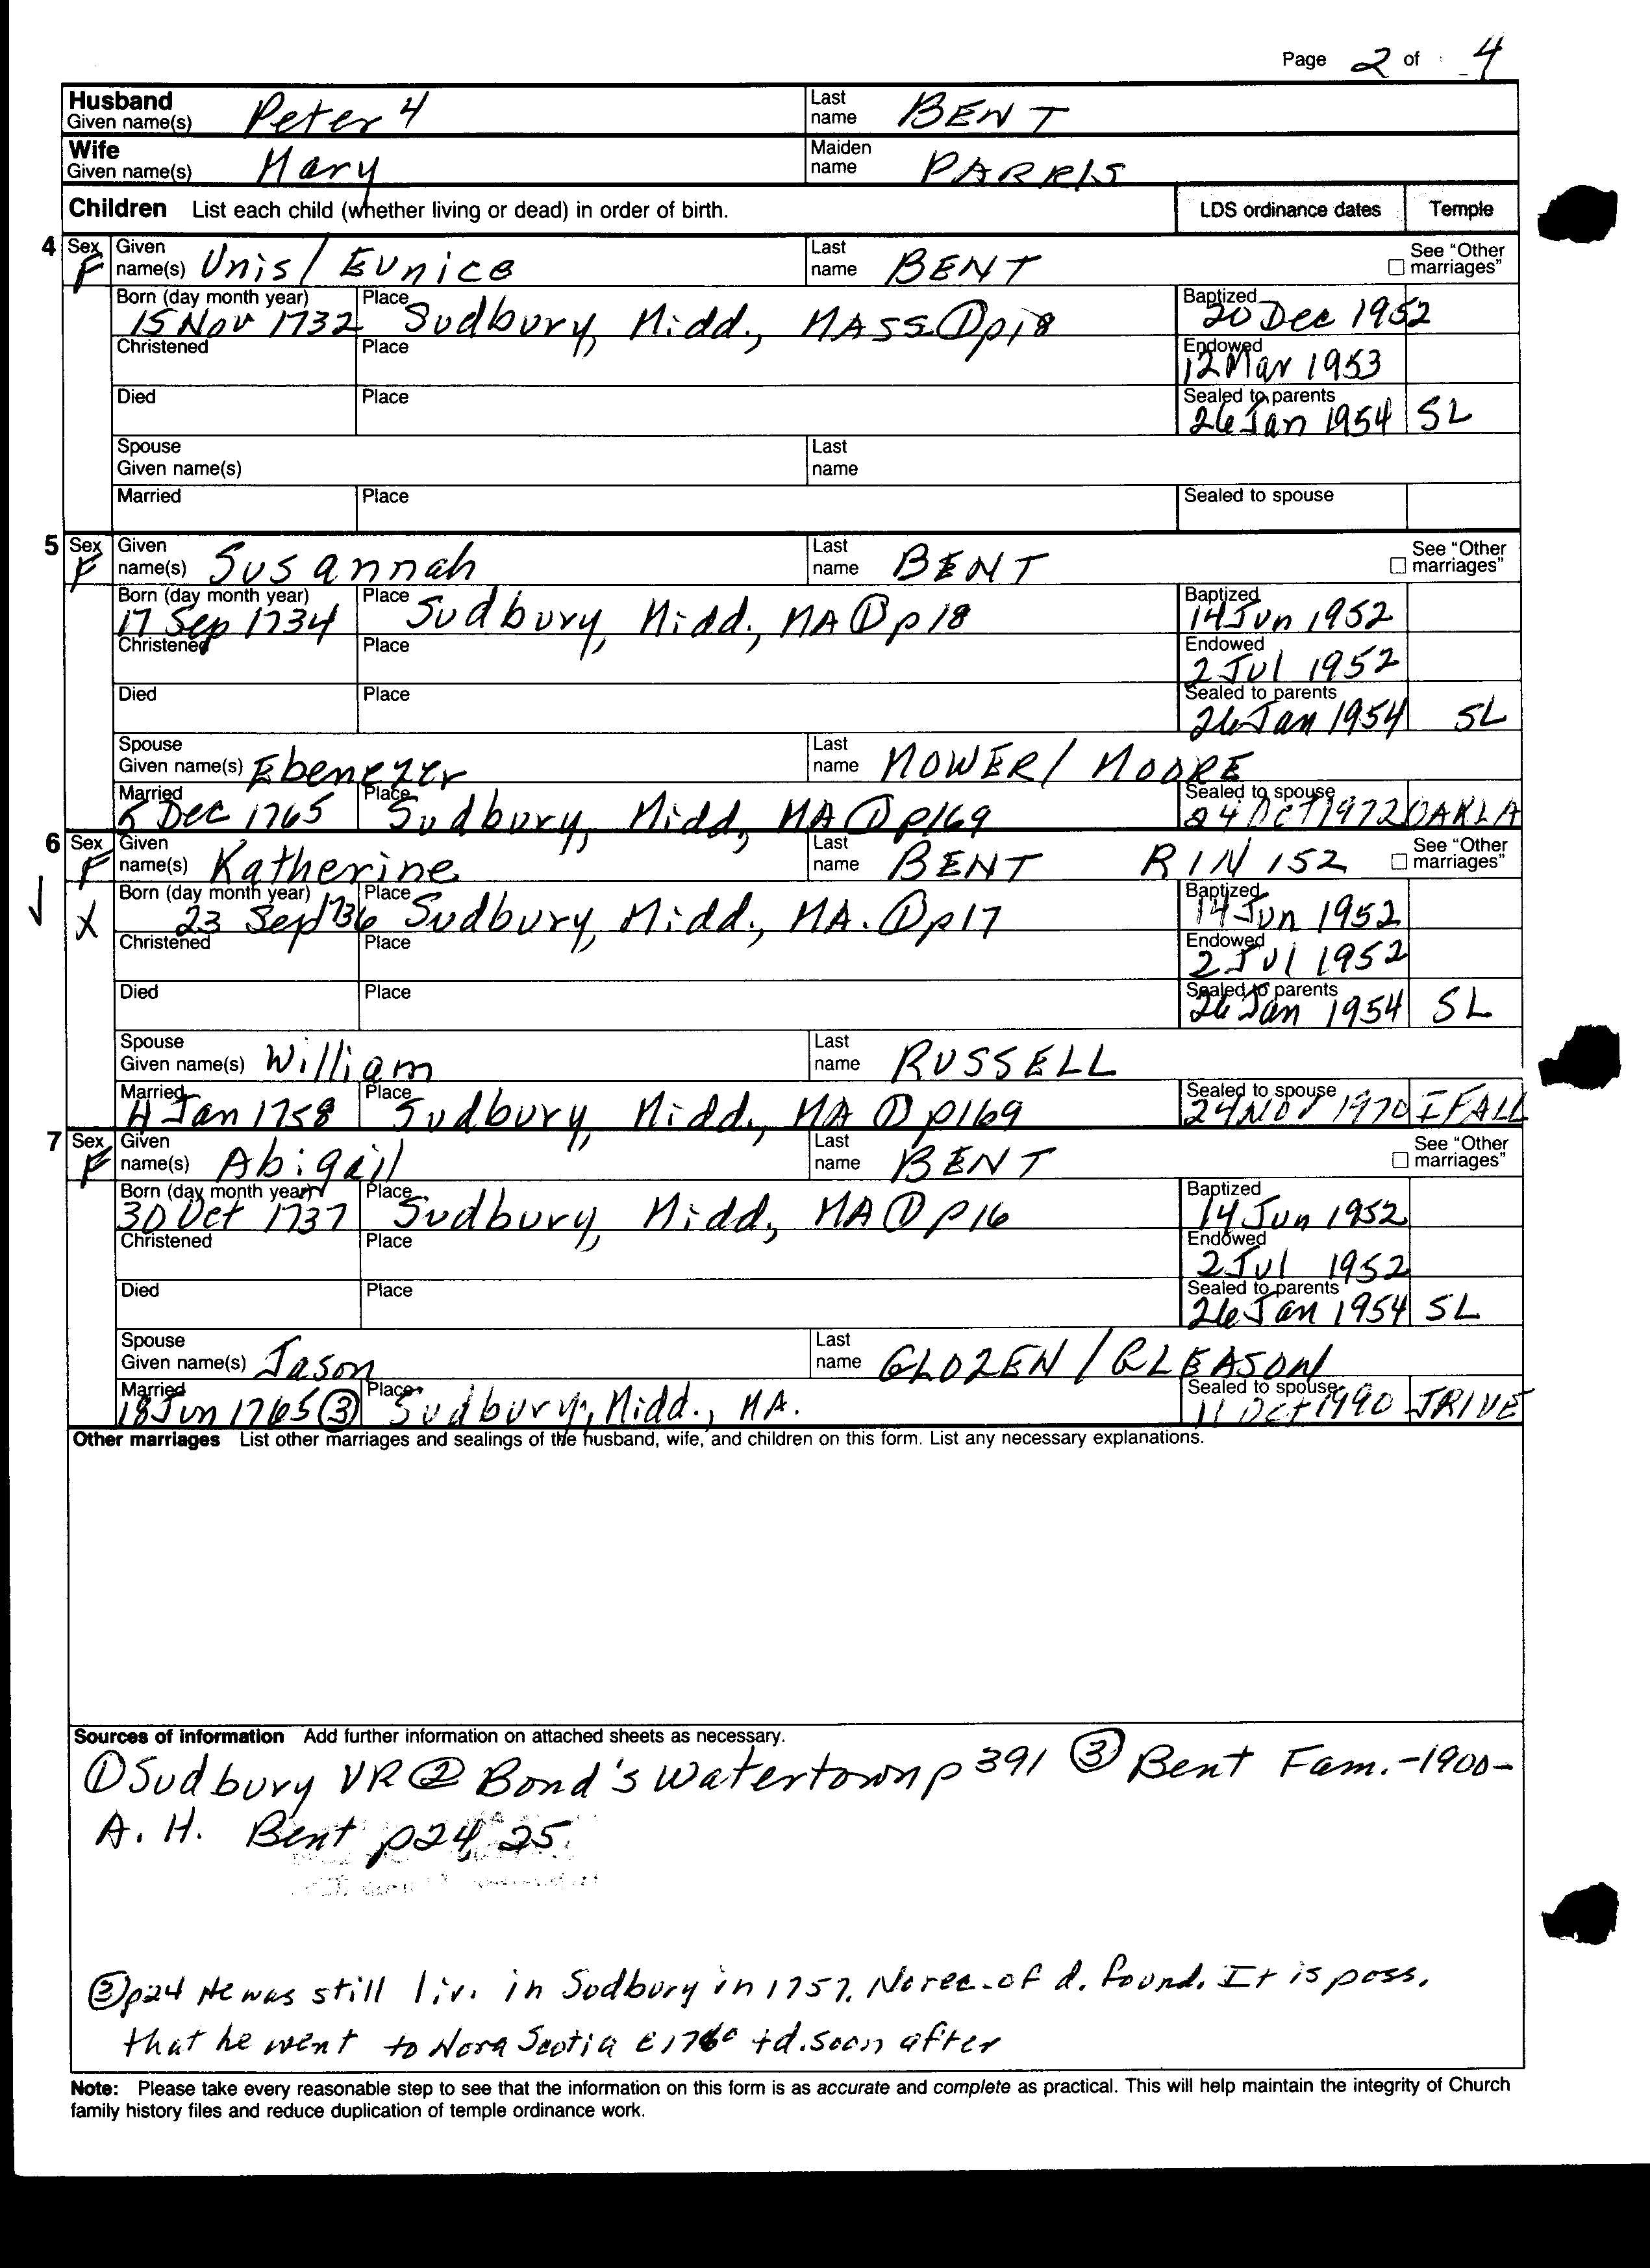 Page 2 of 4
Husband Given name(s) Peter 4 Last name BENT
Wife Given name(s) Mary Maiden name PARRIS
Children List each child (whether living or dead) in order of birth. LDS ordinance dates Temple
4 Sex F Given name(s) Unis / Eunice Last name BENT See "Other marriages"
Born (day month year) 15 Nov 1732 Place Sudbury, Midd., MASS ① p18 Baptized 20 Dec 1952
Christened Place Endowed 12 Mar 1953
Died Place Sealed to parents 26 Jan 1954 SL
Spouse Given name(s) Last name
Married Place Sealed to spouse
5 Sex F Given name(s) Susannah Last name BENT See "Other marriages"
Born (day month year) 17 Sep 1734 Place Sudbury, Midd., MA ① p18 Baptized 14 Jun 1952
Christened Place Endowed 2 Jul 1952
Died Place Sealed to parents 26 Jan 1954 SL
Spouse Given name(s) Ebenezer Last name MOWER / MOORE
Married 5 Dec 1765 Place Sudbury, Midd, MA ① p169 Sealed to spouse 24 Oct 1972 OAKLA
6 Sex F Given name(s) Katherine Last name BENT RIN 152 See "Other marriages"
✓ X Born (day month year) 23 Sep 1736 Place Sudbury, Midd., MA. ① p17 Baptized 14 Jun 1952
Christened Place Endowed 2 Jul 1952
Died Place Sealed to parents 26 Jan 1954 SL
Spouse Given name(s) William Last name RUSSELL
Married 4 Jan 1758 Place Sudbury, Midd., MA ① p169 Sealed to spouse 24 Nov 1970 IFALL
7 Sex F Given name(s) Abigail Last name BENT See "Other marriages"
Born (day month year) 30 Oct 1737 Place Sudbury, Midd, MA ① p16 Baptized 14 Jun 1952
Christened Place Endowed 2 Jul 1952
Died Place Sealed to parents 26 Jan 1954 SL
Spouse Given name(s) Jason Last name GLOZEN / GLEASON
Married 18 Jun 1765 ③ Place Sudbury, Midd., MA. Sealed to spouse 11 Oct 1990 JRIVE
Other marriages List other marriages and sealings of the husband, wife, and children on this form. List any necessary explanations.
Sources of information Add further information on attached sheets as necessary.
① Sudbury VR ② Bond's Watertown p 391 ③ Bent Fam. -1900-
A. H. Bent p24 25.
③ p24 He was still liv. in Sudbury in 1757. No rec. of d. found. It is poss.
that he went to Nova Scotia c 1760 + d. soon after
Note: Please take every reasonable step to see that the information on this form is as accurate and complete as practical. This will help maintain the integrity of Church
family history files and reduce duplication of temple ordinance work.